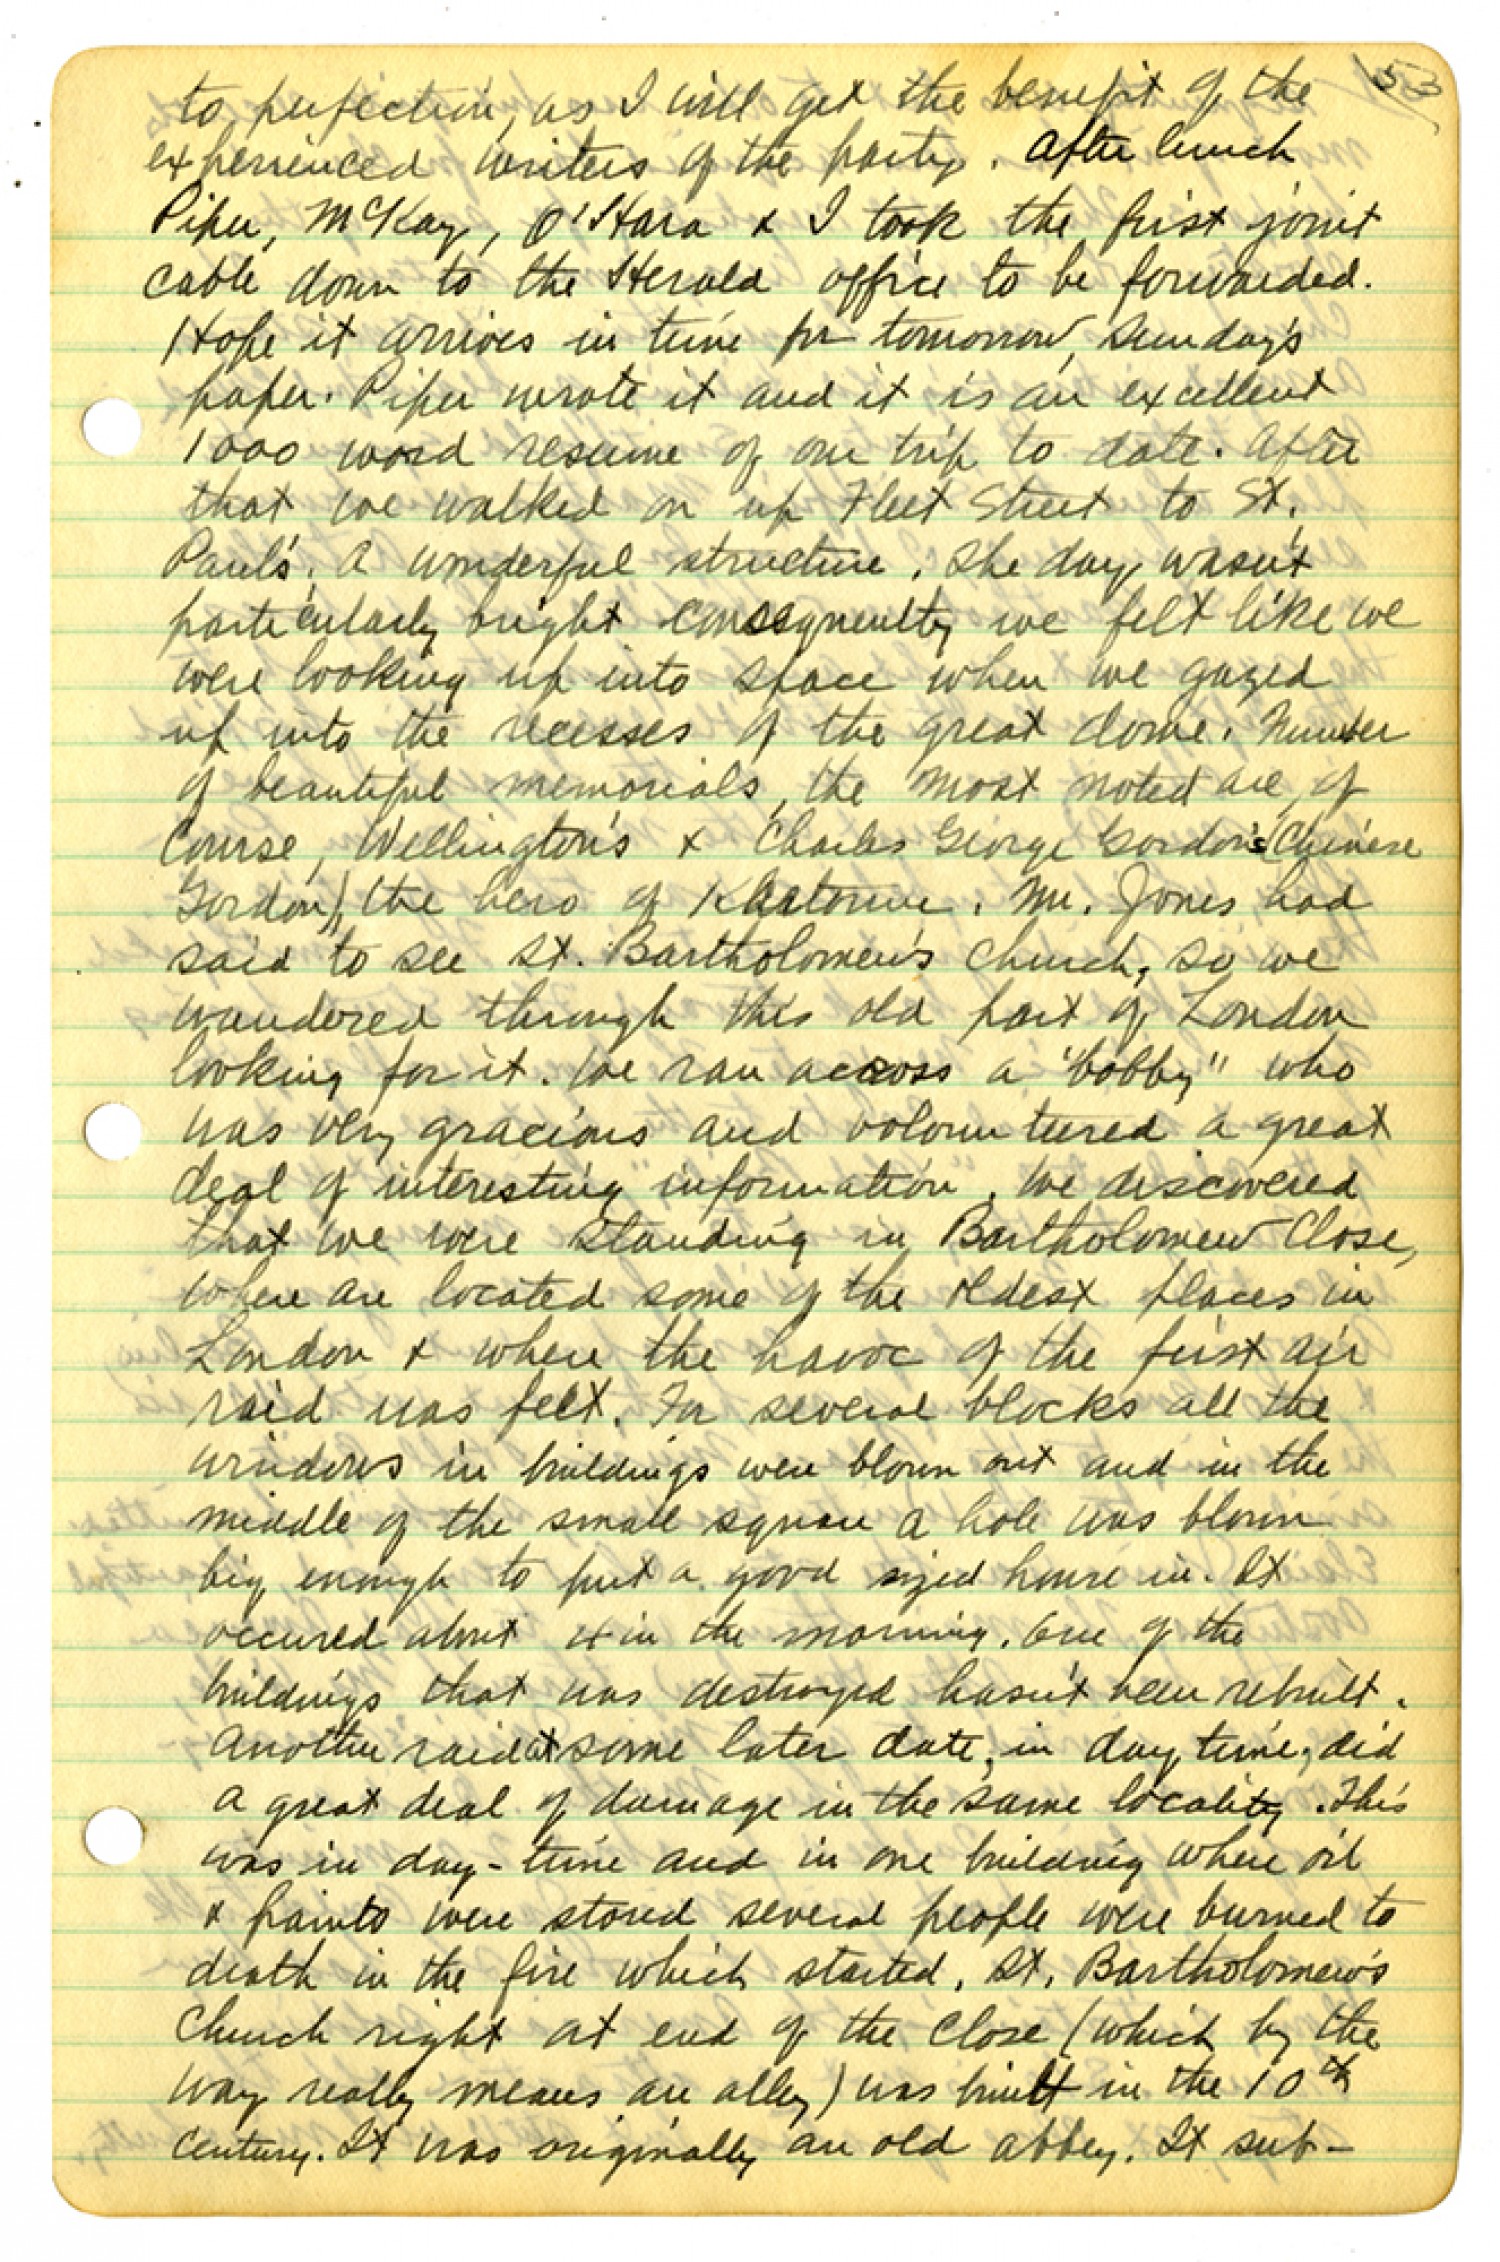 53
to perfection, as I will get the benefit of the
experienced writers of the party. After lunch
Piper, McKay, O'Hara & I took the first joint
cable down to the Herald office to be forwarded.
Hope it arrives in time for tomorrow, Sunday's
paper. Piper wrote it and it is an excellent
1000 word resume of our trip to date. After
that we walked on up Fleet Street to St.
Paul's. A wonderful structure. The day wasn't
particularly bright consequently we felt like we
were looking up into space when we gazed
up into the recesses of the great dome. Number
of beautiful memorials, the most noted are, of
course, Wellington's & Charles George Gordon's (Chinese
Gordon), the hero of Khartoum. Mr. Jones had
said to see St. Bartholomew's Church, so we
wandered through this old part of London
looking for it. We ran across a "bobby" who
was very gracious and volounteered a great
deal of interesting information. We discovered
that we were standing in Bartholomew Close,
where are located some of the oldest places in
London & where the havoc of the first air
raid was felt. For several blocks all the
windows in buildings were blown out and in the
middle of the small square a hole was blown
big enough to put a good sized house in. It
occured about in the morning. One of the
buildings that was destroyed hasn't been rebuilt.
Another raid at some later date, in day time, did
a great deal of damage in the same locality. This
was in day-time and in one building where oil
& paints were stored several people were burned to
death in the fire which started. St. Bartholomew's
Church right at end of the Close (which by the
way really means an alley) was built in the 10th
century. It was originally an old abbey. It sub-